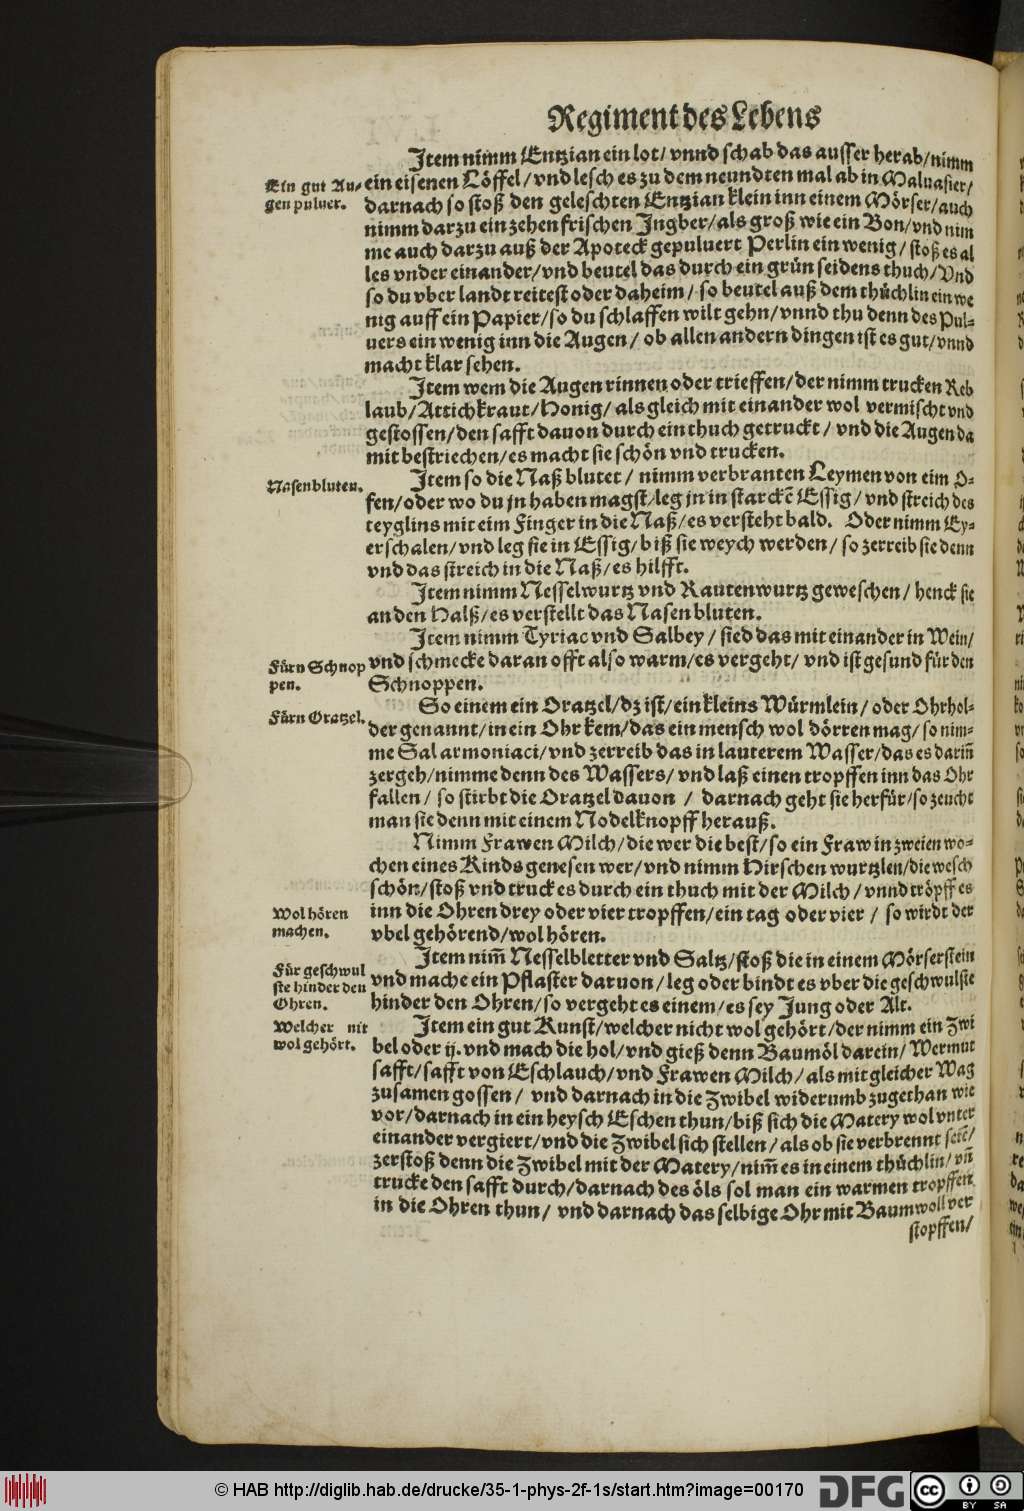 Regiment des Lebens
Item nimm Entzian ein lot/ vnnd schab das ausser herab/nimm
Ein gut Au-
gen puluer.
ein eisenen Löffel/ vnd lesch es zu dem neundten mal ab in Maluasier/
darnach so stoß den geleschten Entzian klein inn einem Mörser/auch
nimm darzu ein zehen frischen Ingber/als groß wie ein Bon/vnd nim
me auch darzu auß der Apoteck gepuluert Perlin ein wenig/ stoß es al
les vnder einander/vnd beutel das durch ein grün seidens thuch/Vnd
so du vber landt reitest oder daheim/ so beutel auß dem thüchlin ein we
nig auff ein Papier/so du schlaffen wilt gehn/vnnd thu denn des Pul-
uers ein wenig inn die Augen/ ob allen andern dingen ist es gut/vnnd
macht klar sehen.
Item wem die Augen rinnen oder trieffen/der nimm trucken Reb
laub/Attichkraut/Honig/ als gleich mit einander wol vermischt vnd
gestossen/den safft dauon durch ein thuch getruckt/ vnd die Augen da
mit bestriechen/es macht sie schön vnd trucken.
Nasenbluten.
Item so die Naß blutet/ nimm verbranten Leymen von eim O-
fen/oder wo du jn haben magst/leg jn in starckē Essig/ vnd streich des
teyglins mit eim Finger in die Naß/es versteht bald. Oder nimm Ey-
erschalen/vnd leg sie in Essig/biß sie weych werden/ so zerreib sie denn
vnd das streich in die Naß/es hilfft.
Item nimm Nesselwurtz vnd Rautenwurtz geweschen/ henck sie
an den Halß/es verstellt das Nasen bluten.
Item nimm Tyriac vnd Salbey/ sied das mit einander in Wein/
Fürn Schnop
pen.
vnd schmecke daran offt also warm/es vergeht/ vnd ist gesund für den
Schnoppen.
Fürn Oratzel.
So einem ein Oratzel/dz ist/ein kleins Würmlein/ oder Ohrhol-
der genannt/in ein Ohr kem/das ein mensch wol dörren mag/ so nim-
me Sal armoniaci/vnd zerreib das in lauterem Wasser/das es dariñ
zergeh/nimme denn des Wassers/ vnd laß einen tropffen inn das Ohr
fallen/ so stirbt die Oratzel dauon/ darnach geht sie herfür/so zeucht
man sie denn mit einem Nodelknopff herauß.
Nimm Frawen Milch/die wer die best/so ein Fraw in zweien wo-
chen eines Kinds genesen wer/vnd nimm Hirschen wurtzlen/die wesch
schön/stoß vnd truck es durch ein thuch mit der Milch/ vnnd tröpff es
Wol hören
machen.
inn die Ohren drey oder vier tropffen/ein tag oder vier/ so wirdt der
vbel gehörend/wol hören.
Item nim̃ Nesselbletter vnd Saltz/stoß die in einem Mörserstein
Für geschwul
ste hinder den
Ohren.
vnd mache ein Pflaster daruon/leg oder bindt es vber die geschwulste
hinder den Ohren/so vergeht es einem/es sey Jung oder Alt.
Welcher nit
wol gehört.
Item ein gut Kunst/welcher nicht wol gehört/der nimm ein Zwi
bel oder ij. vnd mach die hol/vnd gieß denn Baumöl darein/ Wermut
safft/safft von Eschlauch/vnd Frawen Milch/als mit gleicher Wag
zusamen gossen/ vnd darnach in die Zwibel widerumb zugethan wie
vor/darnach in ein heysch Eschen thun/biß sich die Matery wol vnter
einander vergiert/vnd die Zwibel sich stellen/als ob sie verbrennt seiē/
zerstoß denn die Zwibel mit der Matery/nim̃ es in einem thüchlin/vñ
trucke den safft durch/darnach des öls sol man ein warmen tropffen
in die Ohren thun/ vnd darnach das selbige Ohr mit Baumwoll ver
stopffen/
© HAB http://diglib.hab.de/drucke/35-1-phys-2f-1s/start.htm?image=00170
DFG
cc
BY SA